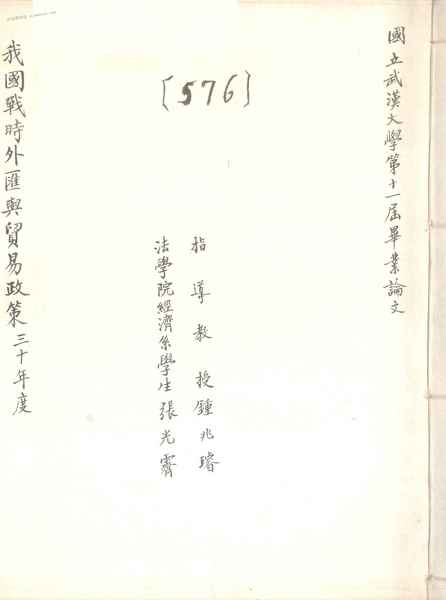 國立武漢大學第十一屆畢業論文
〔576〕
指導教授鍾兆璿
法學院經濟系學生張光霽
我國戰時外匯與貿易政策三十年度